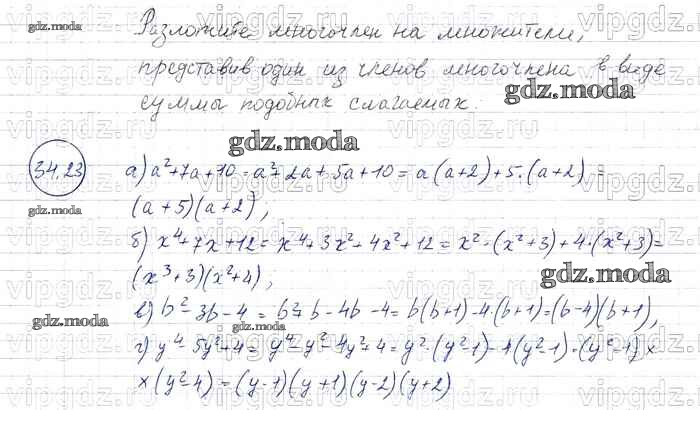 Разложите многочлен на множители,
представив один из членов многочлена в виде
суммы подобных слагаемых.
gdz.moda
gdz.moda
34.23
а) a²+7a+10 = a²+2a+5a+10 = a(a+2)+5·(a+2) =
gdz.moda
(a+5)(a+2);
б) x⁴+7x+12 = x⁴+3x²+4x²+12 = x²·(x²+3)+4·(x²+3)=
(x³+3)(x²+4);
gdz.moda
в) b²-3b-4 = b²+b-4b-4 = b(b+1)-4·(b+1)=(b-4)(b+1),
gdz.moda
gdz.moda
г) y⁴-5y²+4 = y⁴-y²-4y²+4 = y²·(y²-1)-4(y²-1)=(y²-1)×
×(y²-4) = (y-1)(y+1)(y-2)(y+2)
gdz.moda
vipgdz.ru